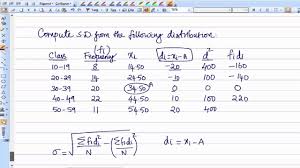 Compute S.D from the following distribution.
(fi)
Class Frequency xi di = xi - A d² fidi
10-19 8 14.50 -20 400 -160
20-29 14 24.50 -10 100 -140
30-39 20 34.50 A 0 0 0
40-49 22 44.50 10 100 220
50-59 11 54.50 20 400
σ = √ Σfidi² / N - (Σfidi / N)² di = xi - A